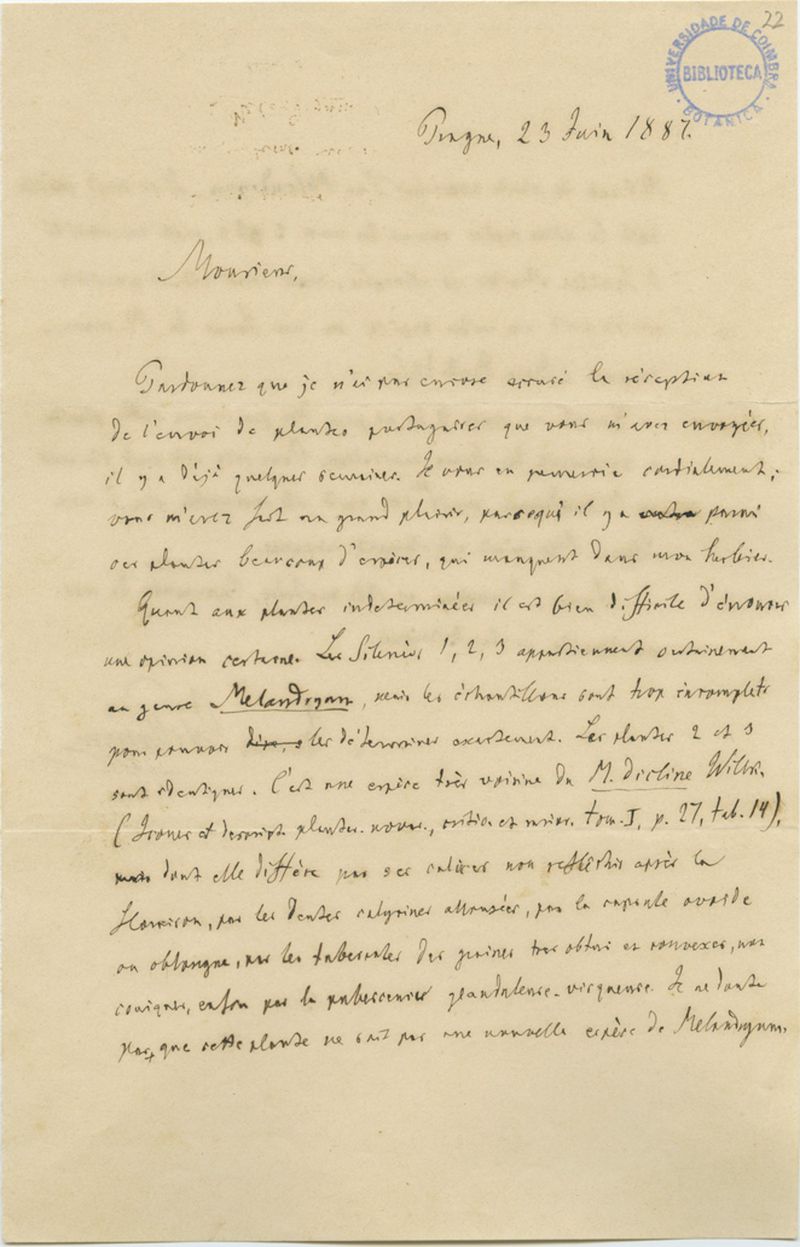 22
UNIVERSIDADE DE COIMBRA
BIBLIOTECA
BOTANICA
Prague, 23 Juin 1887.
Monsieur,
Pardonnez que je n'ai pas encore accusé la réception
de l'envoi de plantes portugaises que vous m'avez envoyées,
il y a déjà quelques semaines. Je vous en remercie cordialement;
vous m'avez fait un grand plaisir, parcequ'il y a entre parmi
ces plantes beaucoup d'espèces, qui manquent dans mon herbier.
Quant aux plantes indeterminées il est bien difficile d'énoncer
une opinion certaine. Les Silenées 1, 2, 3 appartiennent certainement
au genre Melandryum, mais les échantillons sont trop incomplets
pour pouvoir les déterminer exactement. Les plantes 2 et 3
sont identiques. C'est une espèce très voisine du M. dicline Willk.
(Icones et descript. plantar. novar., critic. et rarior. tom. I, p. 27, tab. 14),
dont elle diffère par ses calices non refléchis après la
floraison, par les dents calycines allongées, par la capsule ovoide
ou oblongue, par les tubercules des graines très obtus et convexes, non
coniques, enfin par la pubescence glanduleuse-visqueuse. Je ne doute
pas que cette plante ne soit pas une nouvelle espèce de Melandryum.